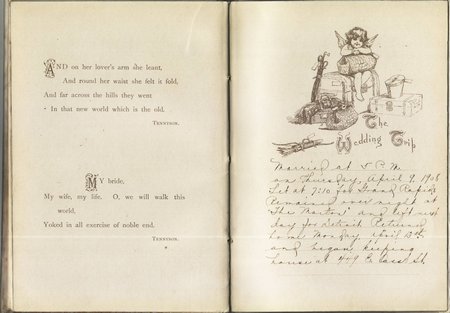 AND on her lover's arm she leant,
And round her waist she felt it fold,
And far across the hills they went
In that new world which is the old.
TENNYSON.
MY bride,
My wife, my life. O, we will walk this
world,
Yoked in all exercise of noble end.
TENNYSON.
The
Wedding Trip
Married at 5 P.M.
on Thursday, April 9, 1908
Left at 7:10 for Grand Rapids
Remained over night at
"The Morton" and left next
day for Detroit. Returned
home Monday April 13th
and began keeping
house at 449 E. Cass St.